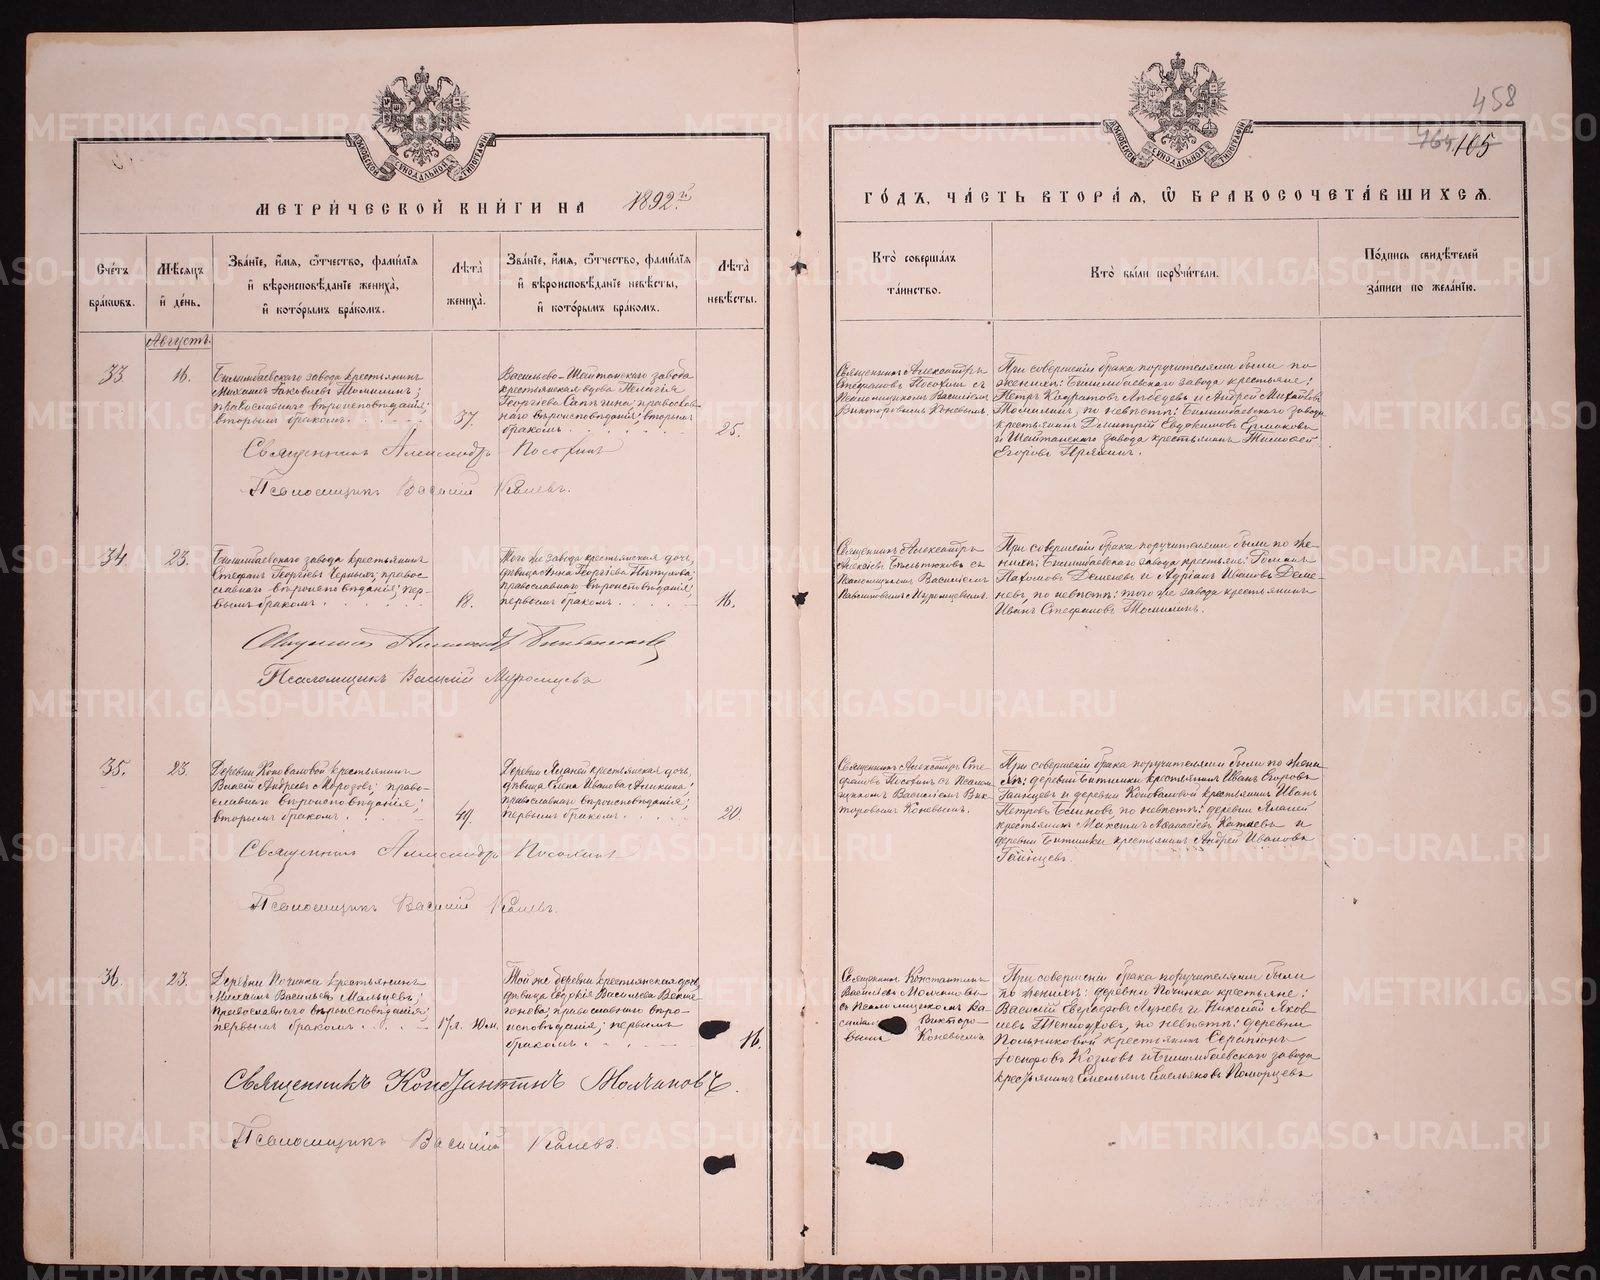 458
764 105
МЕТРИ́ЧЕСКОЙ КНИ́ГИ НА 1892 й
ГО́ДЪ, ЧА́СТЬ ВТОРА́Я, Ѿ БРАКОСОЧЕТА́ВШИХСЯ.
Сче́тъ бра́кωвъ.
Мѣ́сяцъ и҆ де́нь.
Зва́нїе, и҆́мя, ѻ҆́тчество, фами́лїя
и҆ вѣроисповѣ́данїе жениха̀,
и҆ кото́рымъ бра́комъ.
Лѣта̀ жениха̀.
Зва́нїе, и҆́мя, ѻ҆́тчество, фами́лїя
и҆ вѣроисповѣ́данїе невѣ́сты,
и҆ кото́рымъ бра́комъ.
Лѣта̀ невѣ́сты.
Кто̀ соверша́лъ
та́инство.
Кто̀ бы́ли порꙋчи́тели.
По́дпись свидѣ́телей
за́писи по жела́нїю.
Августъ.
33.
16.
Билимбаевского завода крестьянинъ
Михаилъ Іаковлевъ Томилинъ;
православнаго вѣроисповѣданія;
вторымъ бракомъ
37.
Васильево-Шайтанского завода
крестьянская вдова Пелагія
Георгіева Сапѣгина; православ-
наго вѣроисповѣданія; вторымъ
бракомъ
25.
Священникъ Александръ
Стефановъ Посохинъ съ
Псаломщикомъ Василіемъ
Викторовымъ Коневымъ.
При совершеніи брака поручителями были по
женихѣ: Билимбаевскаго завода крестьяне:
Петръ Кодратовъ Лебедевъ и Андрей Михайловъ
Томилинъ, по невѣстѣ: Билимбаевскаго завода
крестьянинъ Димитрій Евдокимовъ Ермаковъ
и Шайтанскаго завода крестьянинъ Тимофей
Егоровъ Пряхинъ.
Священникъ Александръ Посохинъ
Псаломщикъ Василій Коневъ.
34.
23.
Билимбаевского завода крестьянинъ
Стефанъ Георгіевъ Черныхъ; правос-
лавнаго вѣроисповѣданія; пер-
вымъ бракомъ
18.
Того же завода крестьянская дочь,
дѣвица Анна Георгіева Пѣтухова;
православнаго вѣроисповѣданія;
первымъ бракомъ
16.
Священникъ Александръ
Алексіевъ Бѣльтюковъ съ
Псаломщикомъ Василіемъ
Павлиновымъ Муромцевымъ.
При совершеніи брака поручителями были по же-
нихѣ: Билимбаевскаго завода крестьян: Романъ
Пахомовъ Деменевъ и Адріанъ Ивановъ Деме-
невъ, по невѣстѣ: того же завода крестьянинъ
Иванъ Стефановъ Томилинъ.
Священникъ Александръ Бѣльтюковъ
Псаломщикъ Василій Муромцевъ
35.
23.
Деревни Коноваловой крестьянинъ
Василій Андреевъ Морозовъ; право-
славнаго вѣроисповѣданія;
вторымъ бракомъ
49.
Деревни крестьянская дочь,
дѣвица Елена Иванова Аникина;
православнаго вѣроисповѣданія;
первымъ бракомъ
20.
Священникъ Александръ Сте-
фановъ Посохинъ съ Псалом-
щикомъ Василіемъ Вик-
торовымъ Коневымъ.
При совершеніи брака поручителями были по жени-
хѣ: деревни Битимки крестьянинъ Иванъ Егоровъ
Гаинцевъ и деревни Коноваловой крестьянинъ Иванъ
Петровъ по невѣстѣ: деревни
крестьянинъ Максимъ Афанасіевъ и
деревни Битимки крестьянинъ Андрей Ивановъ
Гаинцевъ.
Священникъ Александръ Посохинъ
Псаломщикъ Василій Коневъ.
36.
23.
Деревни Починка крестьянинъ
Михаилъ Васильевъ Мальцевъ;
православнаго вѣроисповѣданія;
первымъ бракомъ
17 л. 10 м.
Той же деревни крестьянская дочь,
дѣвица Евдокія Васильева
православнаго вѣро-
исповѣданія; первымъ
бракомъ
16.
Священникъ Константинъ
Васильевъ Молчановъ
съ Псаломщикомъ Ва-
силіемъ Викторо-
вымъ Коневымъ
При совершеніи брака поручителями были
по женихѣ: деревни Починка крестьяне:
Василій Луневъ и Николай Яков-
левъ Теплоуховъ, по невѣстѣ: деревни
Польниковой крестьянинъ Серапіонъ
Іосифовъ Козловъ и Билимбаевскаго завода
крестьянинъ Емельянъ Емельяновъ Поморцевъ
Священникъ Константинъ Молчановъ.
Псаломщикъ Василій Коневъ.